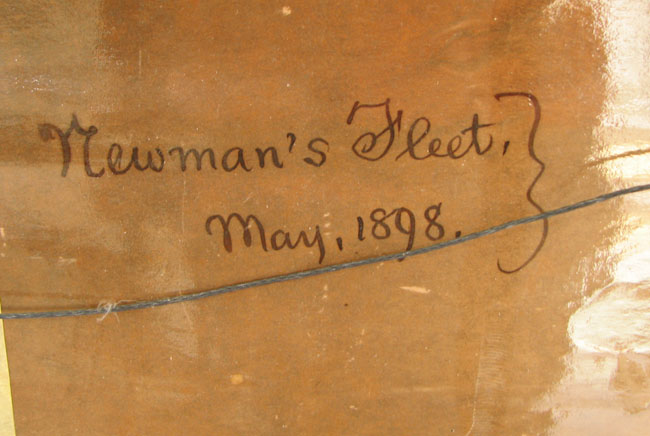 Newman's Fleet,
May, 1898.